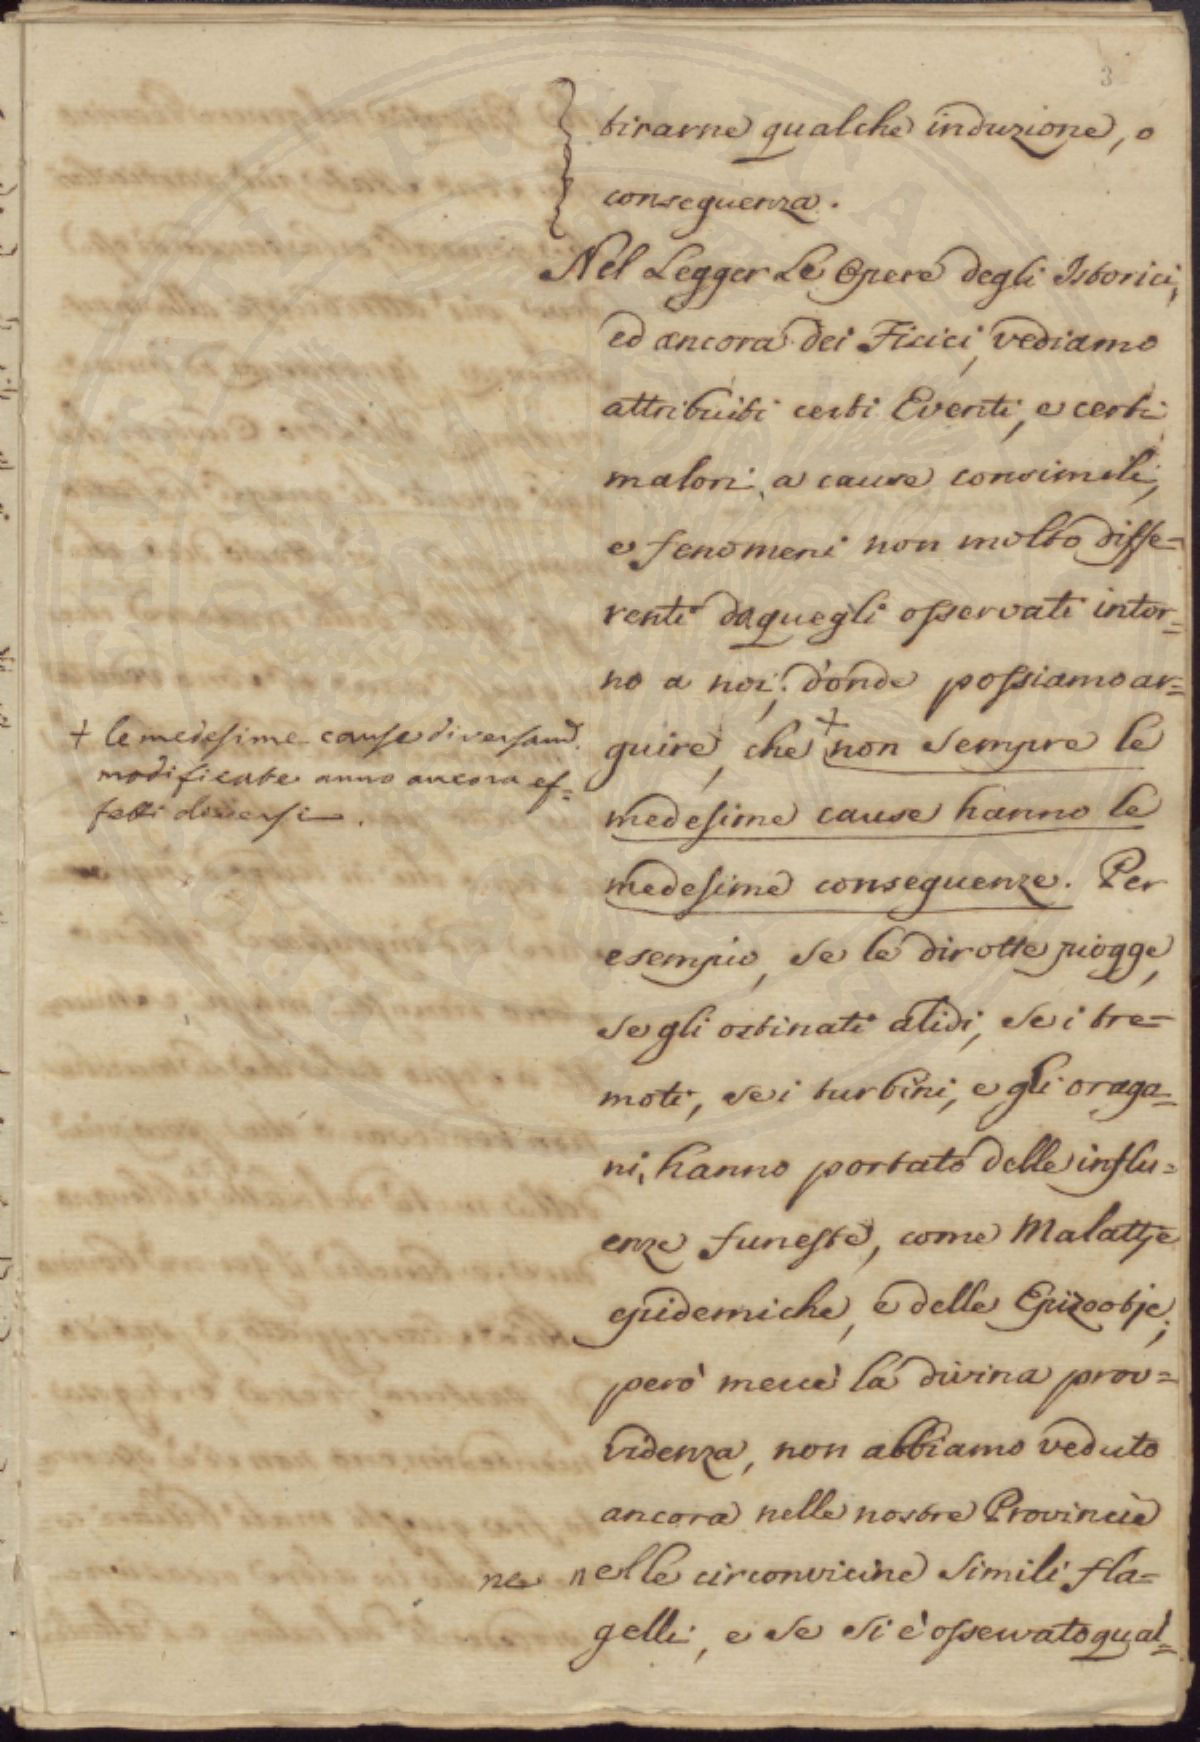 3
tirarne qualche induzione, o
conseguenza.
Nel Legger Le Opere degli Istorici,
ed ancora dei Fisici, vediamo
attribuiti certi Eventi, e certi
malori a cause consimili,
e fenomeni non molto diffe=
renti da quegli osservati intor=
no a noi; d'onde possiamo ar=
guire, che + non sempre le
medesime cause hanno le
medesime conseguenze. Per
esempio, se le dirotte piogge,
se gli ostinati alidi, se i tre=
moti, se i turbini, e gli oraga=
ni, hanno portato delle influ=
enze funeste, come Malattje
epidemiche, e delle Epizootje;
però mercè la divina prov=
videnza, non abbiamo veduto
ancora nelle nostre Provincie
ne nelle circonvicine simili fla=
gelli, e se si è osservato qual=
+ le medesime cause diversamd.
modificate anno ancora ef=
fetti diversi.